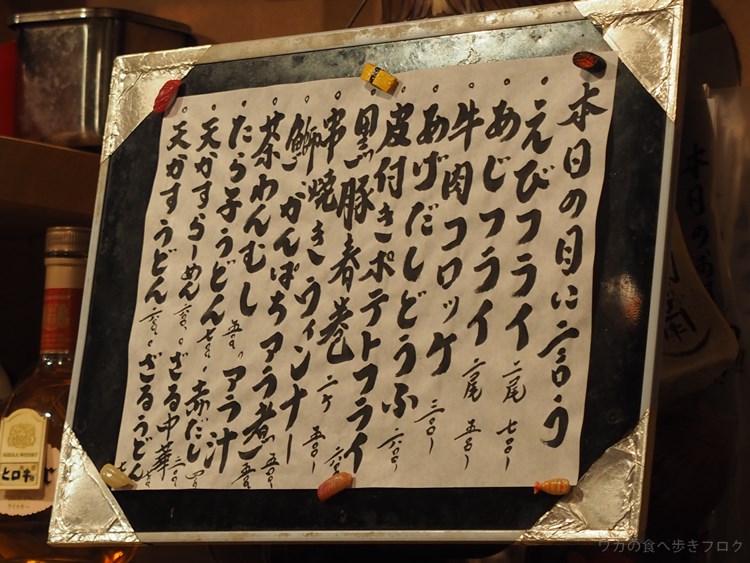 本日の目に言う
えびフライ 二尾 七〇〇ー
あじフライ 二尾 五〇〇ー
牛肉コロッケ 三〇〇ー
あげだしどうふ 六〇〇ー
皮付きポテトフライ 六〇〇
黒豚春巻 二ケ 五〇〇ー
串焼きウィンナー 五〇〇
鰤・かんぱちアラ煮 五〇〇
茶わんむし 五〇〇。アラ汁
たら子うどん 七〇〇。赤だし
天かすらーめん 六〇〇。ざる中華
天かすうどん 六〇〇。ざるうどん
ヒロキ
ワカの食べ歩きブログ